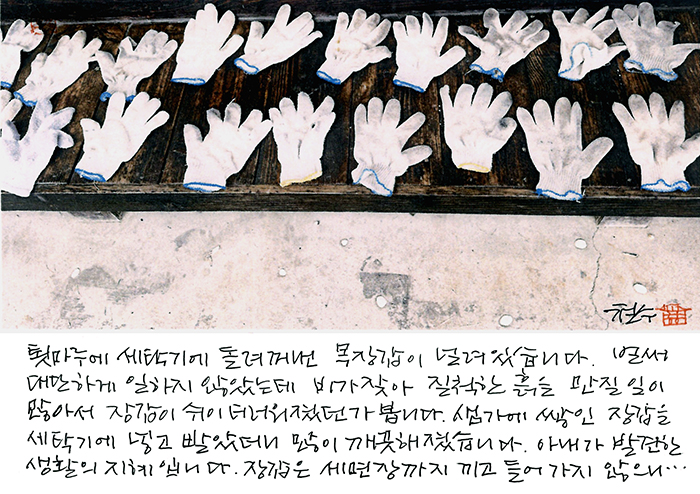 툇마루에 세탁기에 돌려 꺼낸 목장갑이 널려 있습니다. 벌써
대단하게 일하지 않았는데 비가 잦아 질척한 흙을 만질 일이
많아서 장갑이 쉬이 더러워졌던가 봅니다. 샘가에 쌓인 장갑을
세탁기에 넣고 빨았더니 많이 깨끗해졌습니다. 아내가 발견한
생활의 지혜입니다. 장갑은 세면장까지 끼고 들어가지 않으니…